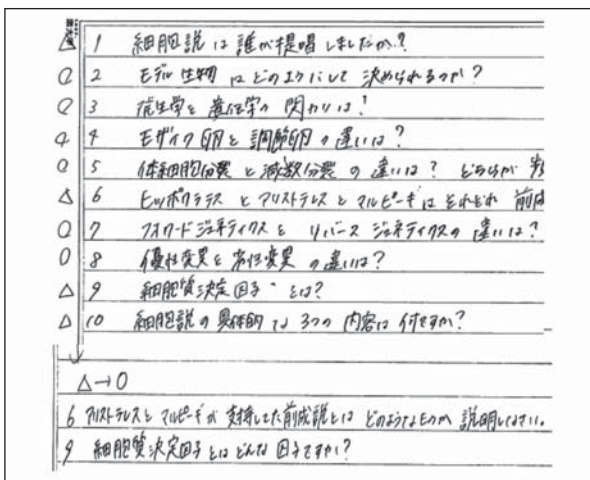 △ 1 細胞説は誰が提唱しましたか?
○ 2 モデル生物はどのようにして決められるのか?
○ 3 発生学と遺伝学の関わりは?
○ 4 モザイク卵と調節卵の違いは?
○ 5 体細胞分裂と減数分裂の違いは? どちらが
△ 6 ヒッポクラテスとアリストテレスとマルピーギはそれぞれ 前成
○ 7 フォワードジェネティクスとリバースジェネティクスの違いは?
○ 8 優性変異と劣性変異の違いは?
△ 9 細胞質決定因子とは?
△ 10 細胞説の具体的な3つの内容は何ですか?
△→○
6 アリストテレスとマルピーギが支持してた前成説とはどのようなものか説明しなさい。
9 細胞質決定因子とはどんな因子ですか?